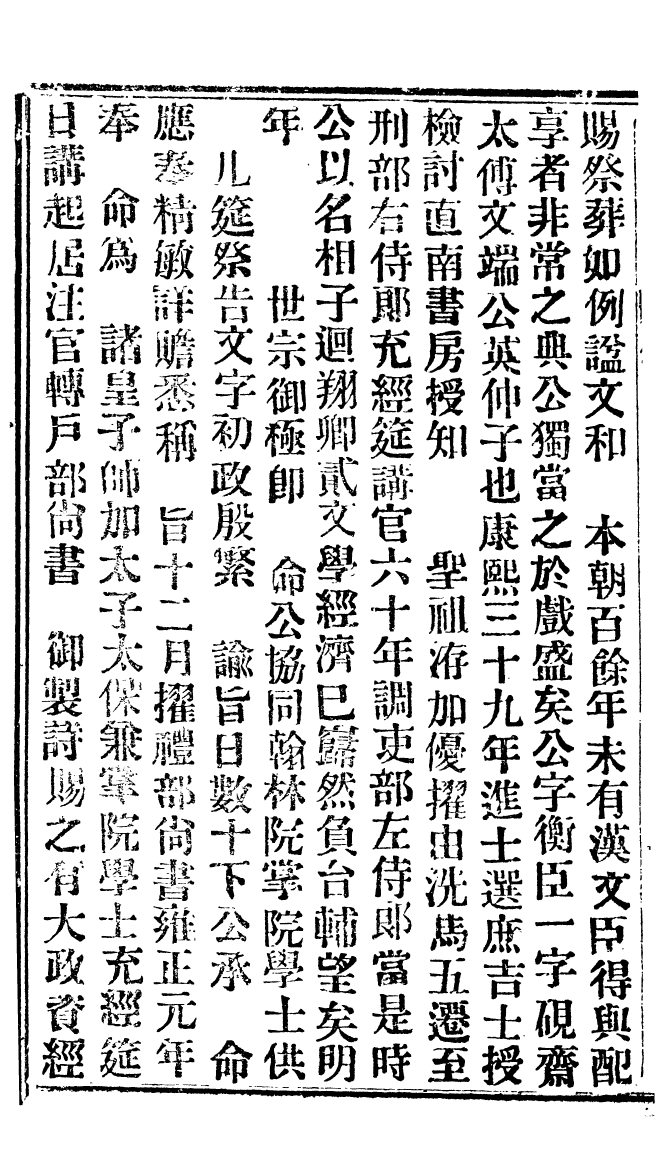 賜祭葬如例諡文和　本朝百餘年未有漢文臣得與配
享者非常之典公獨當之於戲盛矣公字衡臣一字硯齋
太傅文端公英仲子也康熙三十九年進士選庶吉士授
檢討直南書房授知　　聖祖洊加優擢由洗馬五遷至
刑部右侍郎充經筵講官六十年調吏部左侍郎當是時
公以名相子迴翔卿貳文學經濟巳巋然負台輔望矣明
年　　　世宗御極卽　命公協同翰林院掌院學士供
　几筵祭告文字初政殷繁　諭旨日數十下公承　命
應奉精敏詳贍悉稱　旨十二月擢禮部尙書雍正元年
奉　命爲　諸皇子師加太子太保兼掌院學士充經筵
日講起居注官轉戶部尙書　御製詩賜之有大政資經